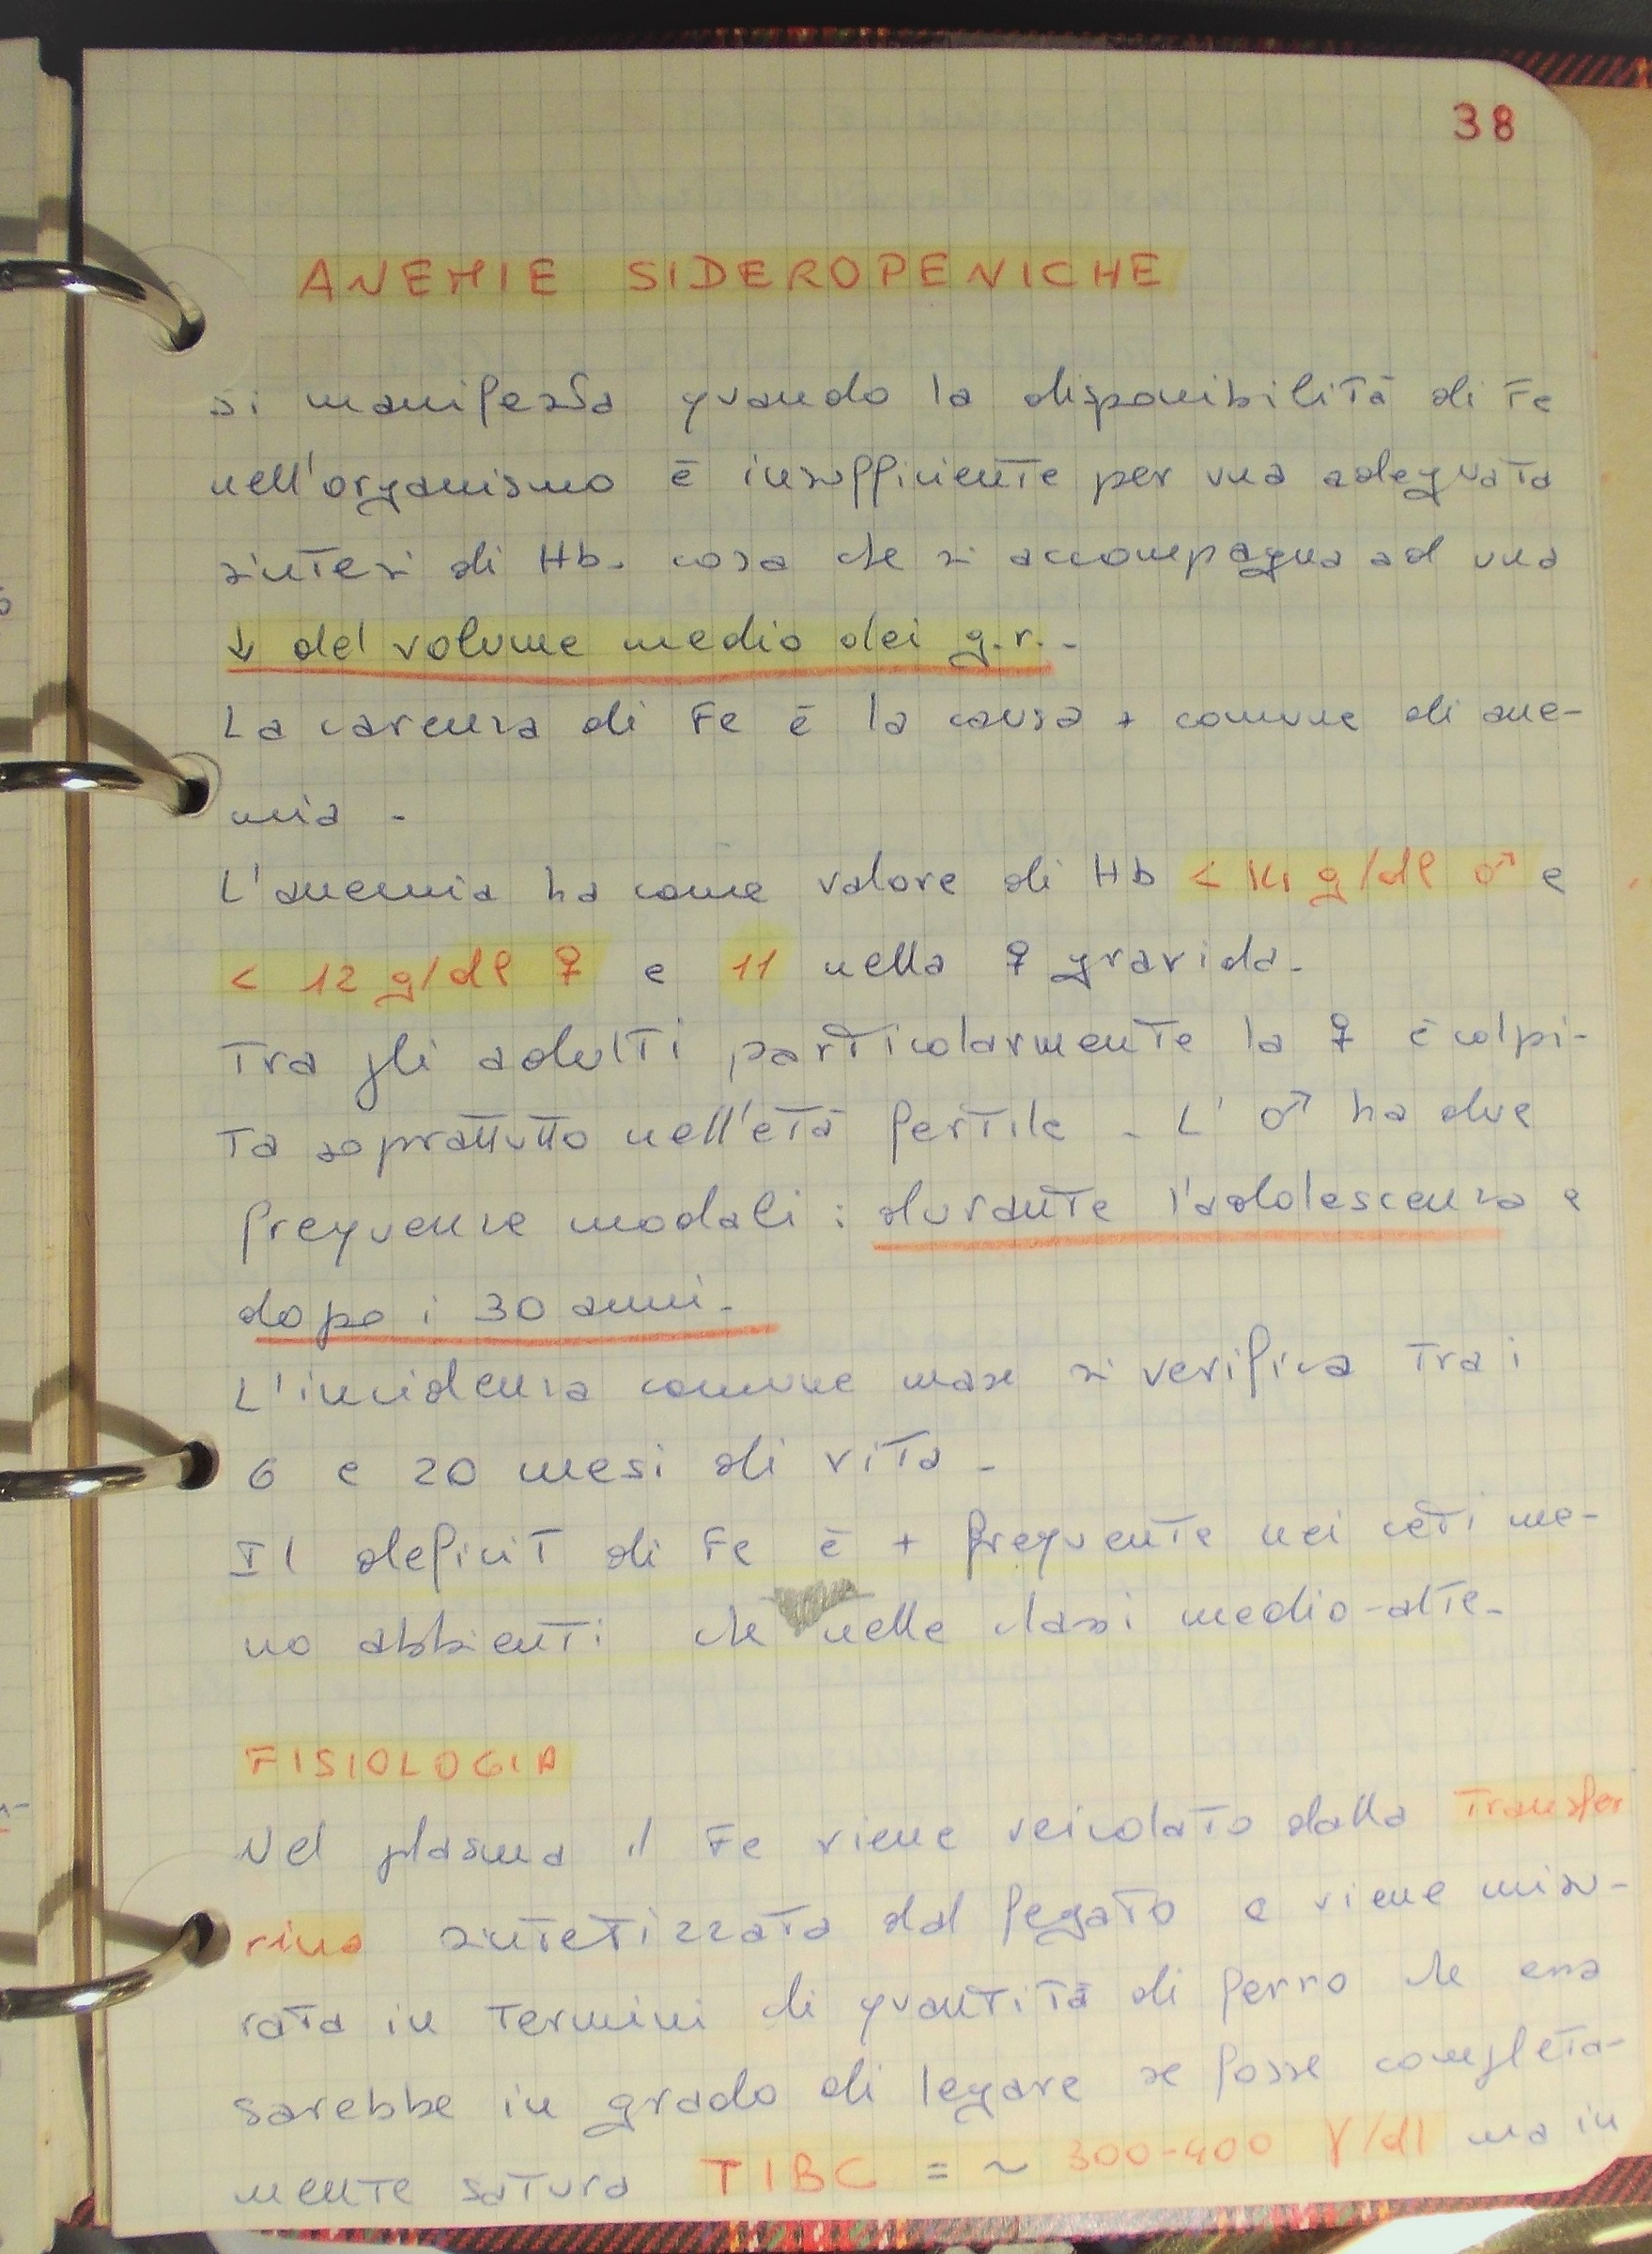 38
ANEMIE SIDEROPENICHE
si manifesta quando la disponibilità di Fe
nell'organismo è insufficiente per una adeguata
sintesi di Hb. cosa che si accompagna ad una
↓ del volume medio dei g.r. -
La carenza di Fe è la causa + comune di ane-
mia -
L'anemia ha come valore di Hb < 14 g/dl ♂ e
< 12 g/dl ♀ e 11 nella ♀ gravida -
Tra gli adulti particolarmente la ♀ è colpi-
ta soprattutto nell'età fertile - L' ♂ ha due
frequenze modali : durante l'adolescenza e
dopo i 30 anni -
L'incidenza comune max si verifica tra i
6 e 20 mesi di vita -
Il deficit di Fe è + frequente nei ceti me-
no abbienti che nelle classi medio-alte -
FISIOLOGIA
Nel plasma il Fe viene veicolato dalla Transfer
rina sintetizzata dal fegato e viene misu-
rata in termini di quantità di ferro che essa
sarebbe in grado di legare se fosse completa-
mente satura TIBC = ~ 300-400 γ/dl ma in